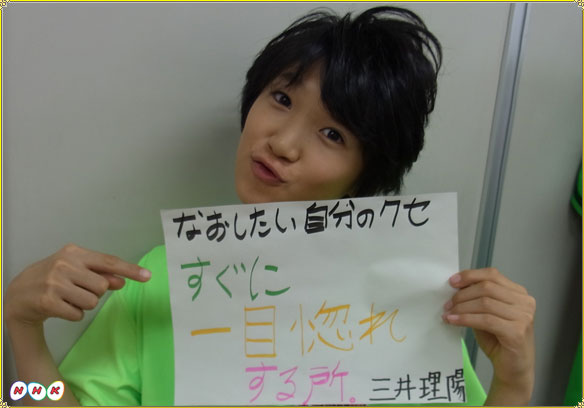 なおしたい自分のクセ
すぐに
一目惚れ
する所。三井理陽
NHK